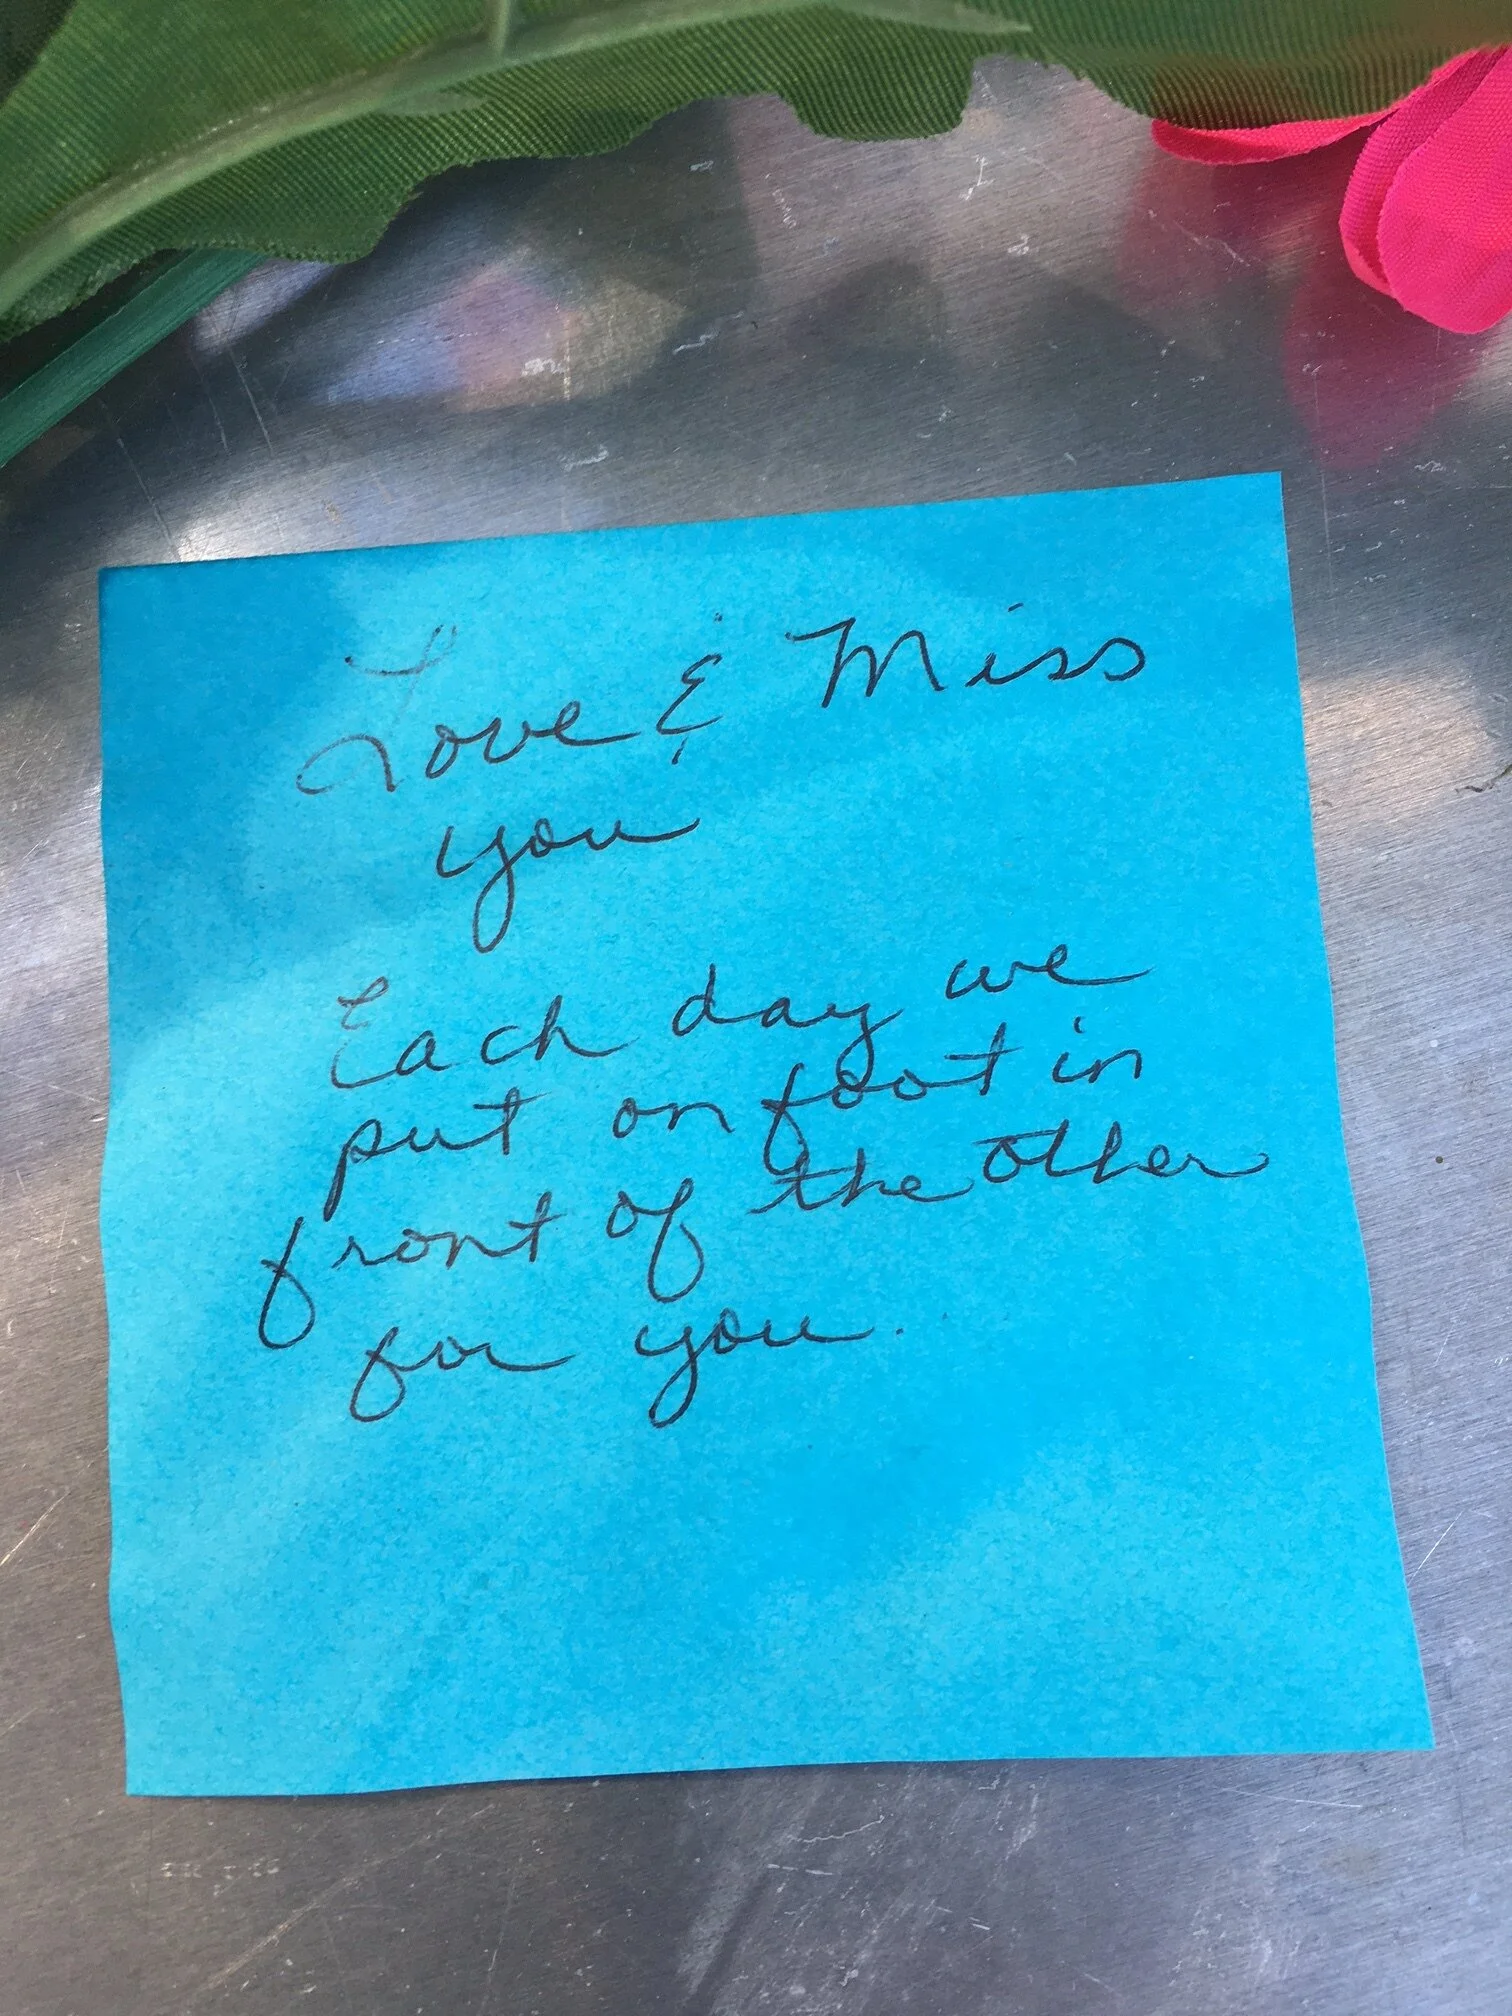 Love & Miss
you
Each day we
put on foot in
front of the other
for you.